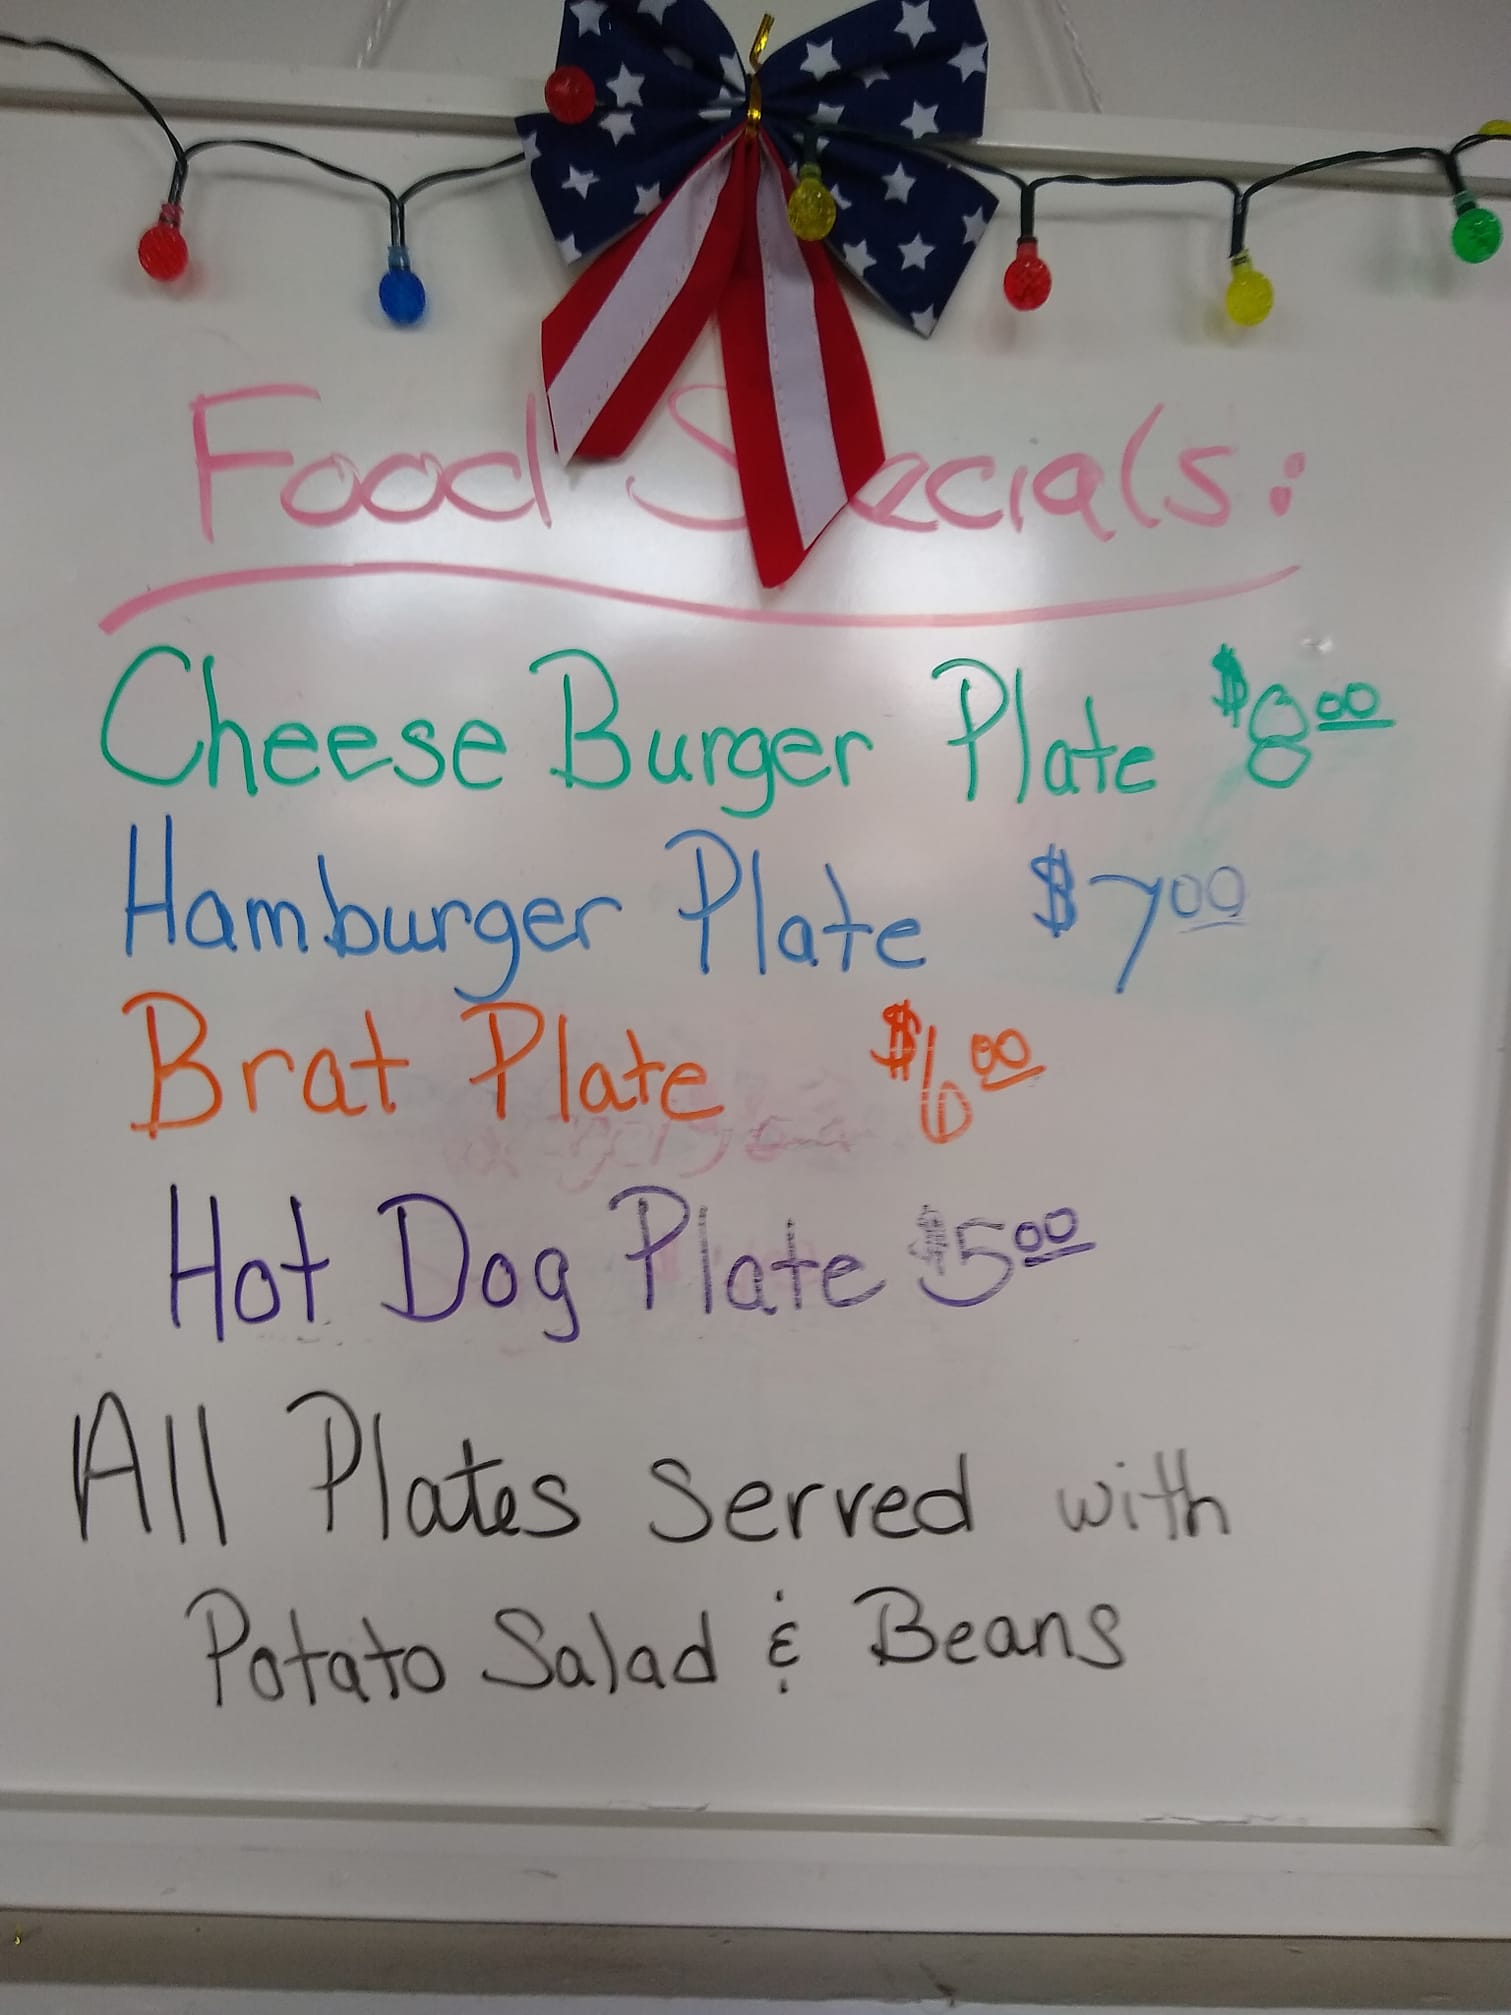 Food Specials:
Cheese Burger Plate $8.00
Hamburger Plate $7.00
Brat Plate $6.00
Hot Dog Plate $5.00
All Plates Served with
Potato Salad & Beans